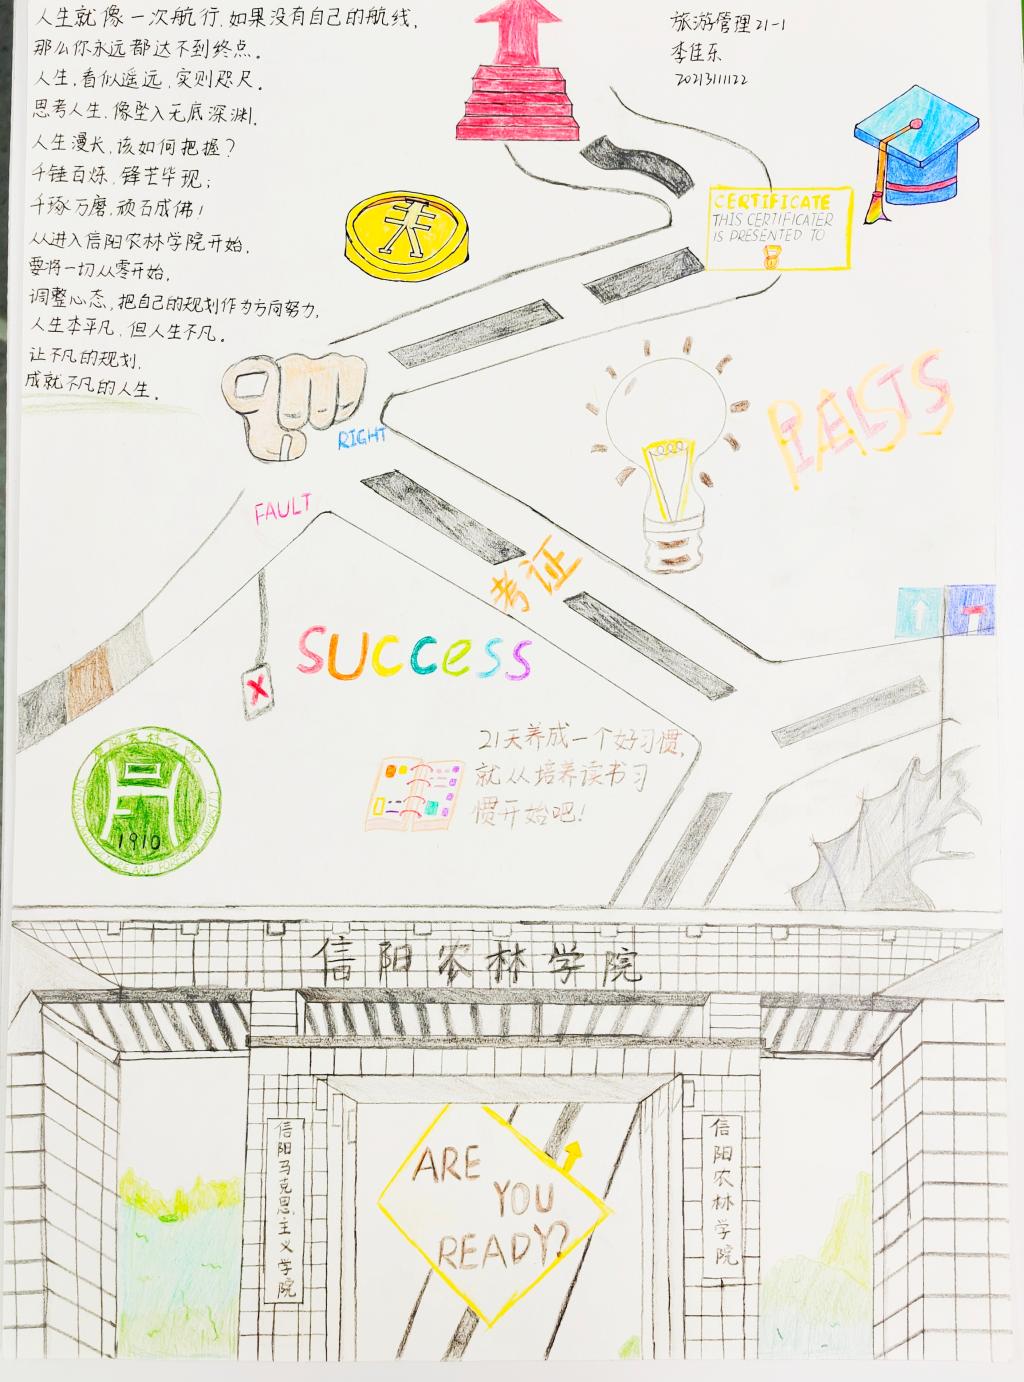 人生就像一次航行，如果没有自己的航线，
那么你永远都达不到终点。
人生，看似遥远，实则咫尺。
思考人生，像坠入无底深渊。
人生漫长，该如何把握？
千锤百炼，锋芒毕现；
千琢万磨，顽石成佛！
从进入信阳农林学院开始，
要将一切从零开始，
调整心态，把自己的规划作为方向努力，
人生本平凡，但人生不凡。
让不凡的规划，
成就不凡的人生。
旅游管理21-1
李佳乐
20213111122
CERTIFICATE
THIS CERTIFICATER
IS PRESENTED TO
RIGHT
FAULT
IELTS
考证
SUCCESS
X
21天养成一个好习惯，
就从培养读书习
惯开始吧！
1910
信阳农林学院
信阳马克思主义学院
信阳农林学院
ARE
YOU
READY?